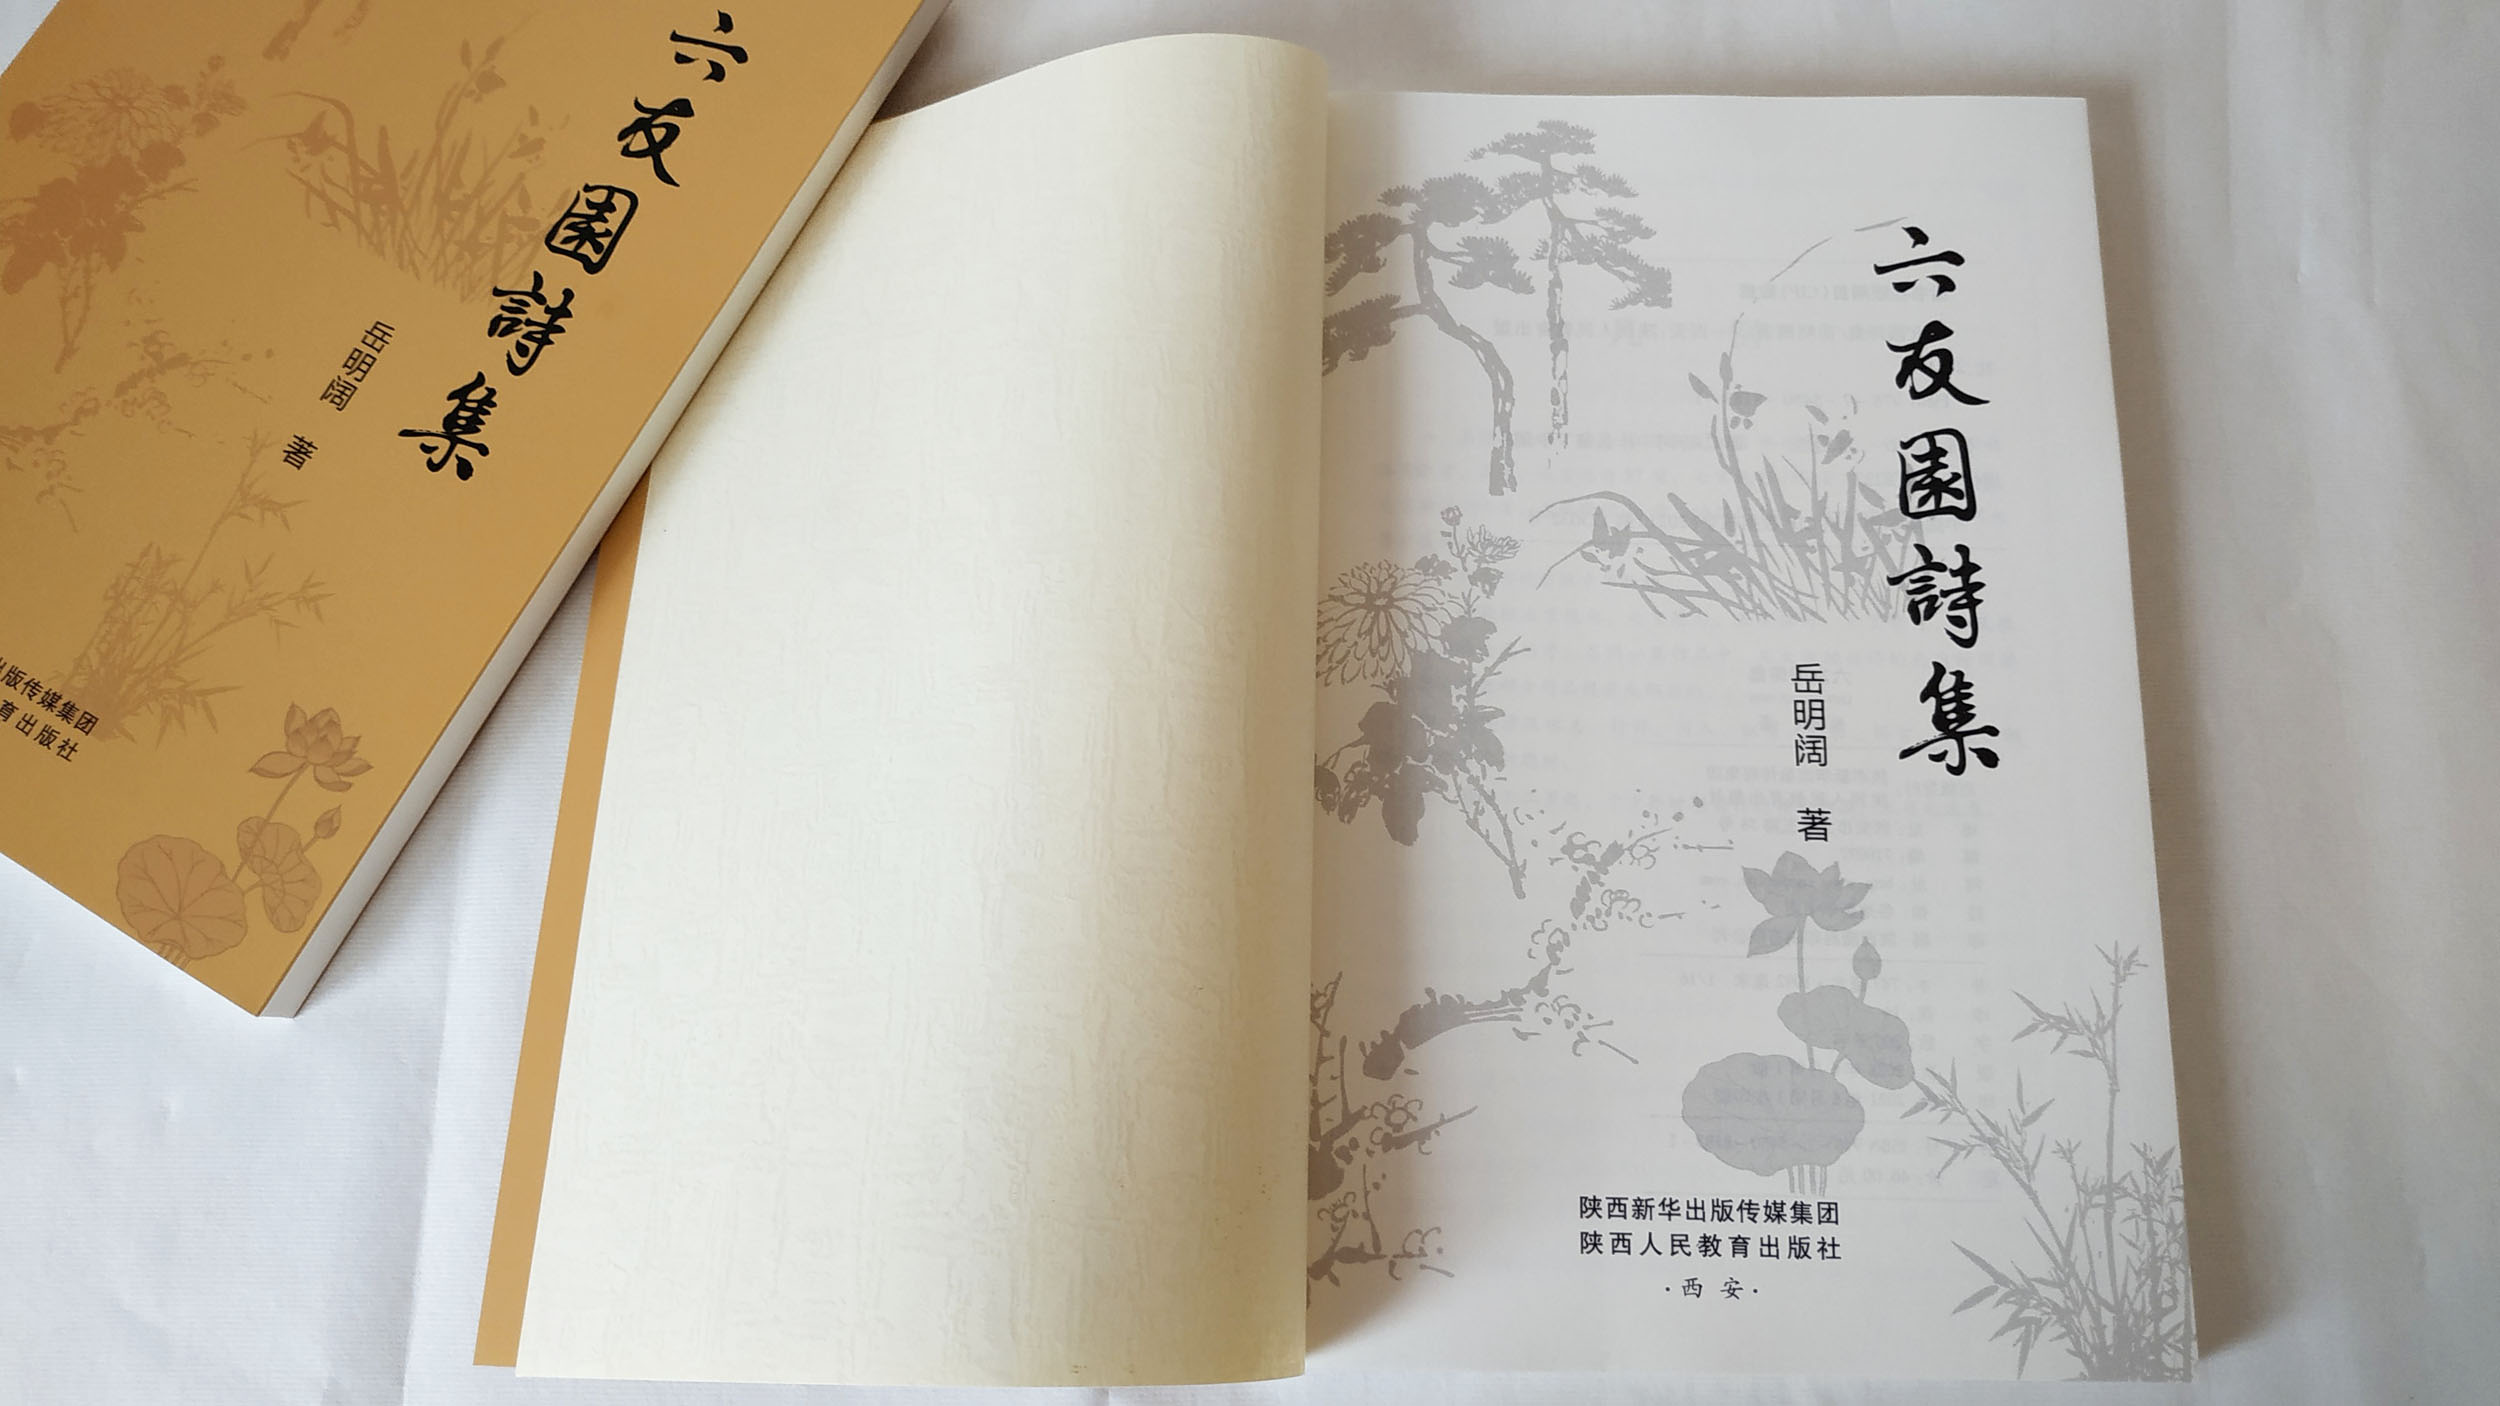 六友園詩集
岳明阔 著
出版传媒集团
育出版社
六友園詩集
岳明阔 著
陕西新华出版传媒集团
陕西人民教育出版社
·西安·